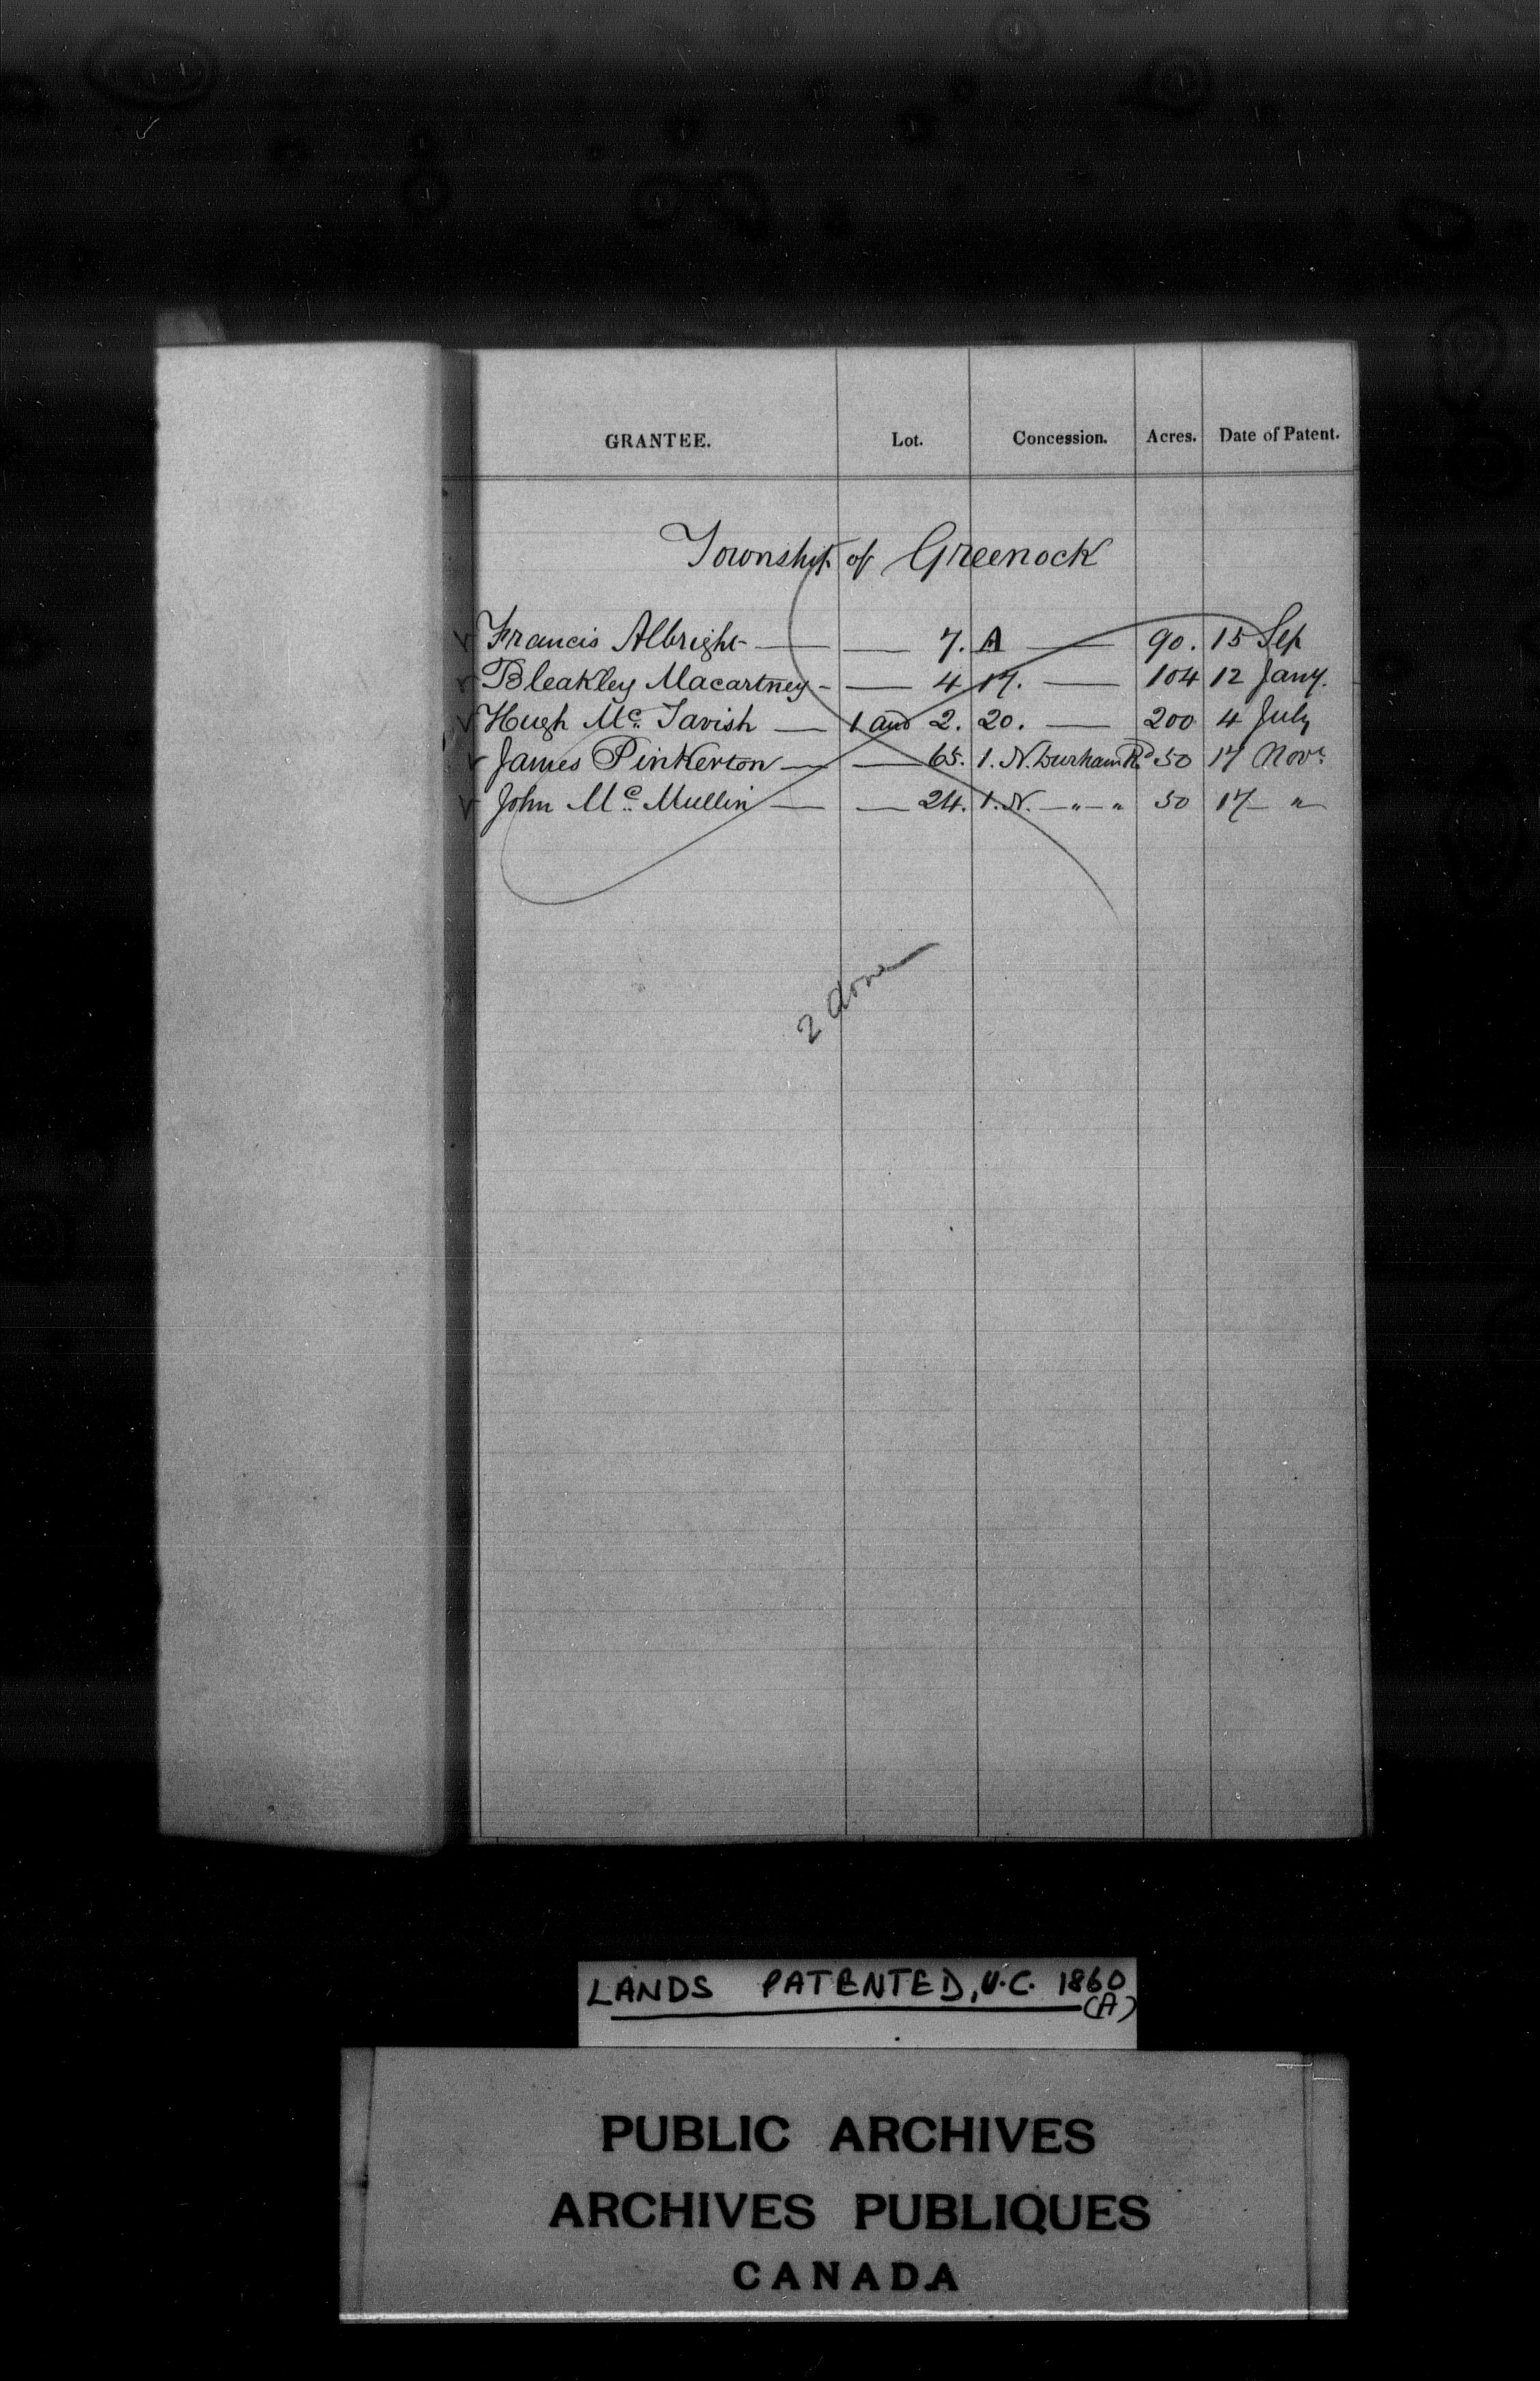 GRANTEE. Lot. Concession. Acres. Date of Patent.
Township of Greenock
Francis Albright — — 7. A — 90. 15 Sep
Bleakley Macartney - — 4 17. — 104 12 Jany.
Hugh Mc. Tavish — 1 and 2. 20. — 200 4 July
James Pinkerton — — 65. 1. N. Durham Rd 50 17 Novr.
John Mc. Mullin — — 24. 1. N. — " — " 50 17 — "
2 done
LANDS PATENTED, U.C. 1860
(A)
PUBLIC ARCHIVES
ARCHIVES PUBLIQUES
CANADA